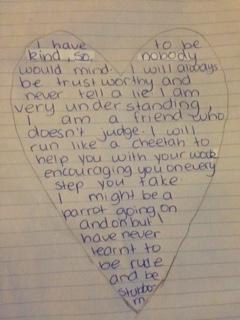 I have to be
kind, so, nobody
would mind. I will always
be trustworthy and
never tell a lie I am
very understanding,
I am a friend who
doesn't judge. I will
run like a cheetah to
help you with your work
encouraging you on every
step you take
I might be a
parrot going on
and on but I
have never
learnt to
be rude
and be
stubbor
n